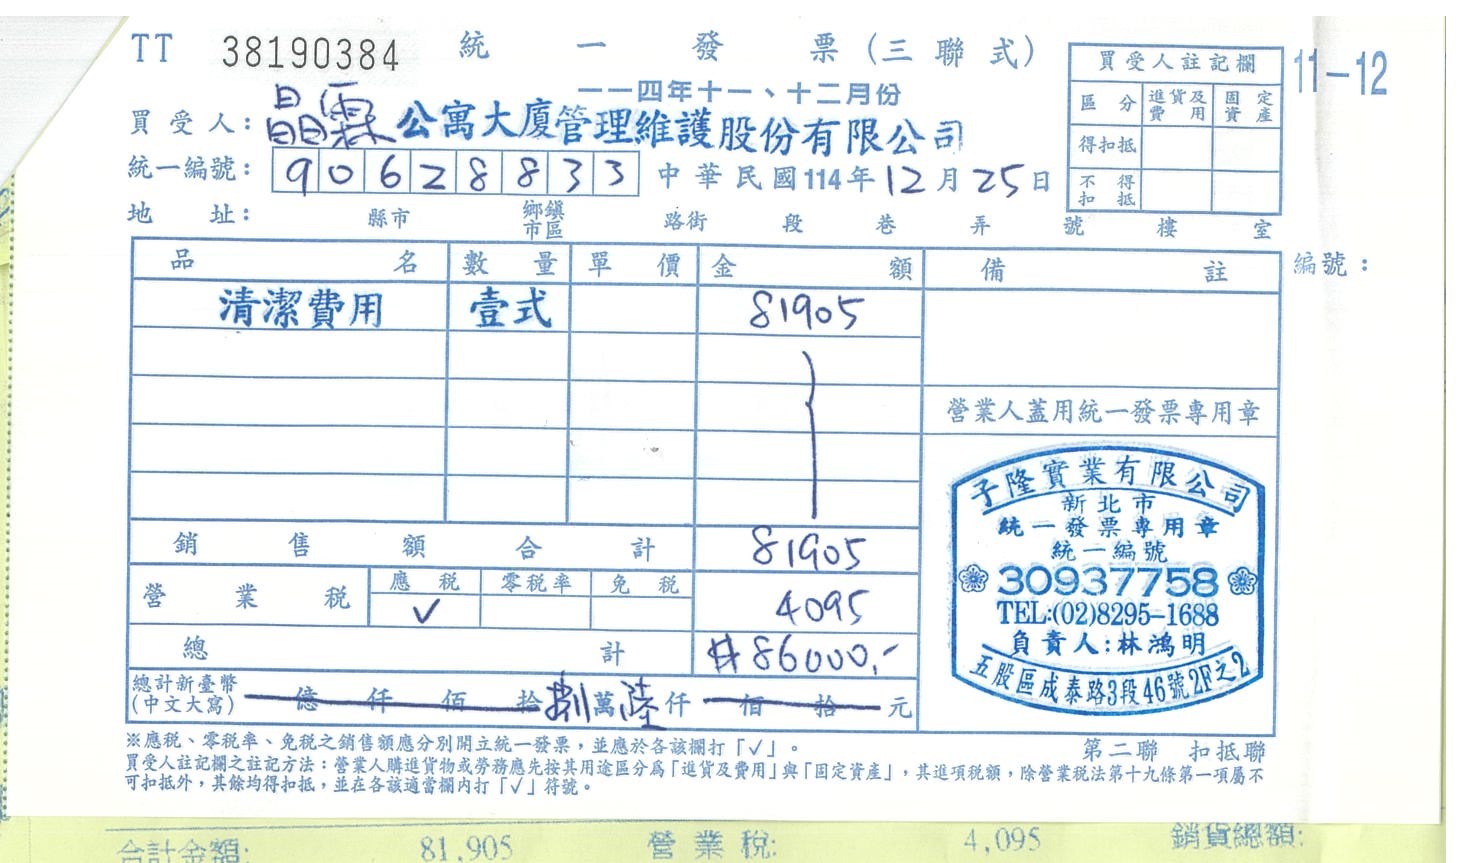 TT 38190384 統一發票(三聯式)
一一四年十一、十二月份
11-12
買受人註記欄
區分 進貨及費用 固定資產
得扣抵
不得扣抵
買受人：晶霖公寓大廈管理維護股份有限公司
統一編號：90628833 中華民國114年12月25日
地址： 縣市 鄉鎮市區 路街 段 巷 弄 號 樓 室
品名 數量 單價 金額 備註 編號：
清潔費用 壹式 81905
營業人蓋用統一發票專用章
銷售額合計 81905
營業稅 應稅 ✓ 零稅率 免稅 4095
總計 #86000.-
總計新臺幣(中文大寫) 億仟佰拾捌萬陸仟佰拾元
子隆實業有限公司
新北市
統一發票專用章
統一編號
30937758
TEL:(02)8295-1688
負責人:林鴻明
五股區成泰路3段46號2F之2
※應稅、零稅率、免稅之銷售額應分別開立統一發票，並應於各該欄打「✓」。 第二聯 扣抵聯
買受人註記欄之註記方法：營業人購進貨物或勞務應先按其用途區分為「進貨及費用」與「固定資產」，其進項稅額，除營業稅法第十九條第一項屬不
可扣抵外，其餘均得扣抵，並在各該適當欄內打「✓」符號。
合計金額: 81,905 營業稅: 4,095 銷貨總額: